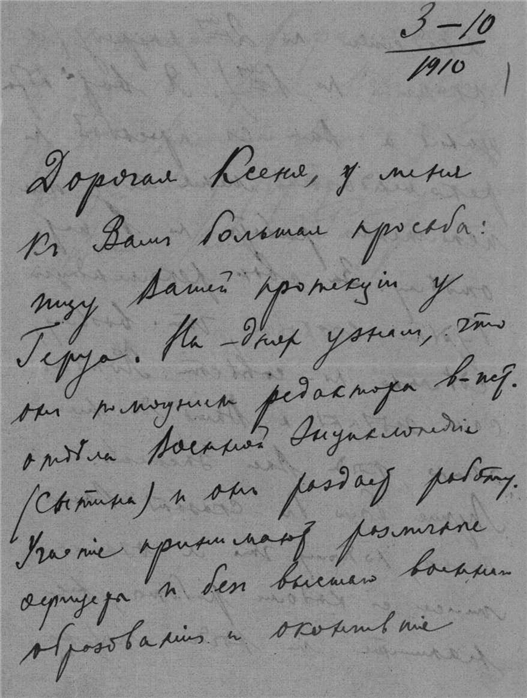 3-10
1910
Дорогая Ксеня, у меня
къ Вамъ большая просьба:
ищу Вашей протекціи у
Геруа. На-дняхъ узналъ, что
онъ помощникъ редактора в-ист.
отдѣла Военной Энциклопедіи
(Сытина) и онъ раздаетъ работу.
Участіе принимаютъ различные
офицеры и безъ высшаго военнаго
образованія и окончившіе